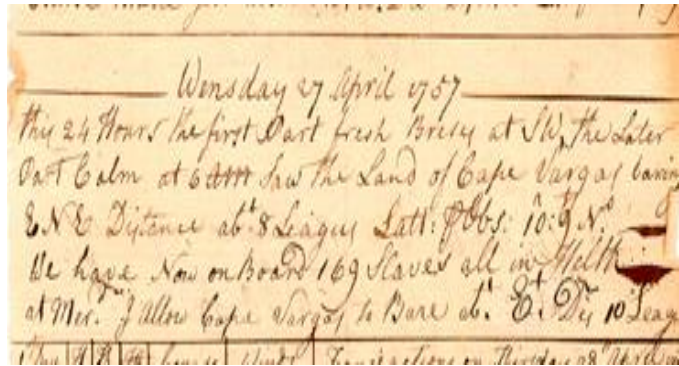 Wensday 27 April 1757
this 24 Hours the first Part fresh Breses at SW, the Later
Part Calm at 6 Saw the Land of Cape Vargas baring
E N E Distence abt 8 Leagues Latt: Obs: 10:9 No
We have Now on Board 169 Slaves all in Helth
at Merdn I Allow Cape Vargas to Bare abt. Et. Dis 10 Leag
Transactions on Thirsday 28th April